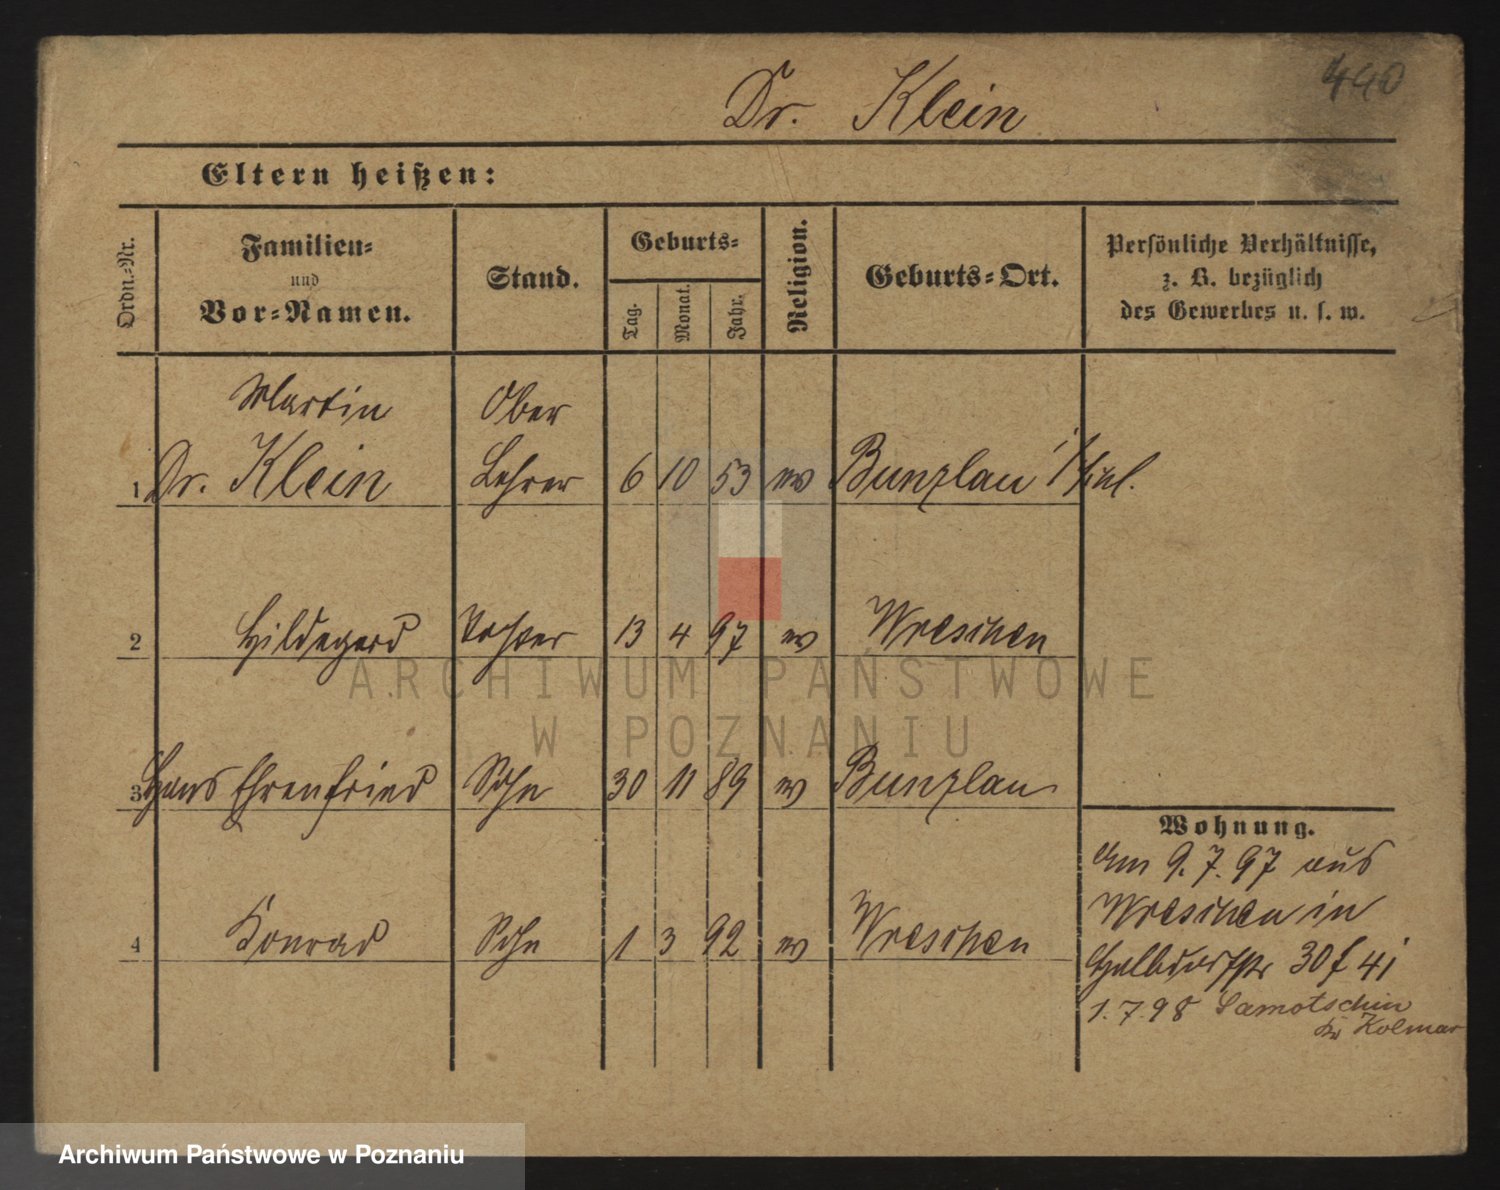 440
Dr. Klein
Eltern heißen:
Ordn.-Nr.
Familien-
und
Vor-Namen.
Stand.
Geburts-
Tag.
Monat.
Jahr.
Religion.
Geburts-Ort.
Persönliche Verhältnisse,
z. B. bezüglich
des Gewerbes u. s. w.
Martin Ober
1 Dr. Klein Lehrer 6 10 53 ev Bunzlau i/Schl.
2 Hildegard Tochter 13 4 97 ev Wreschen
3 Hans Ehrenfried Sohn 30 11 89 ev Bunzlau
4 Konrad Sohn 1 3 92 ev Wreschen
Wohnung.
am 9.7.97 aus
Wreschen in
Halbdorfstr 30
1.7.98 Samotschin
Kr Kolmar
ARCHIWUM PAŃSTWOWE
W POZNANIU
Archiwum Państwowe w Poznaniu